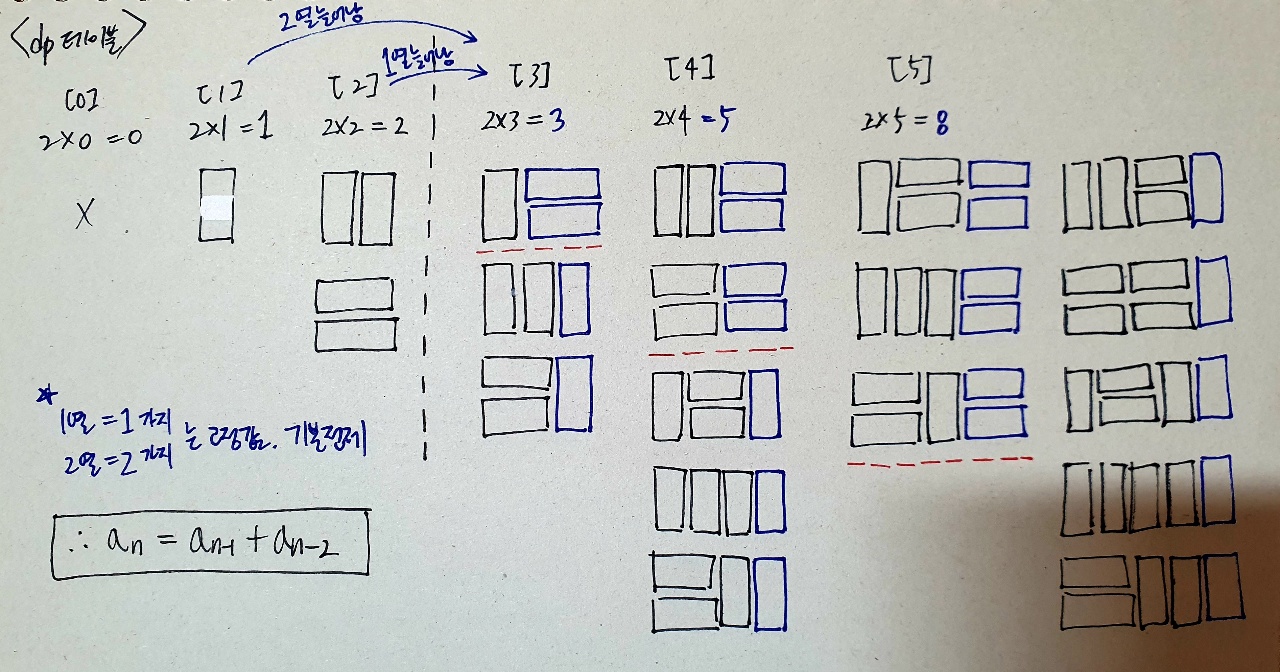 <dp 테이블>
2열늘어남
1열늘어남
[0]
[1]
[2]
[3]
[4]
[5]
2×0 = 0
2×1 = 1
2×2 = 2
2×3 = 3
2×4 = 5
2×5 = 8
X
*
1열 = 1 가지
2열 = 2 가지
는 고정값. 기본전제
∴ aₙ = aₙ₋₁ + aₙ₋₂